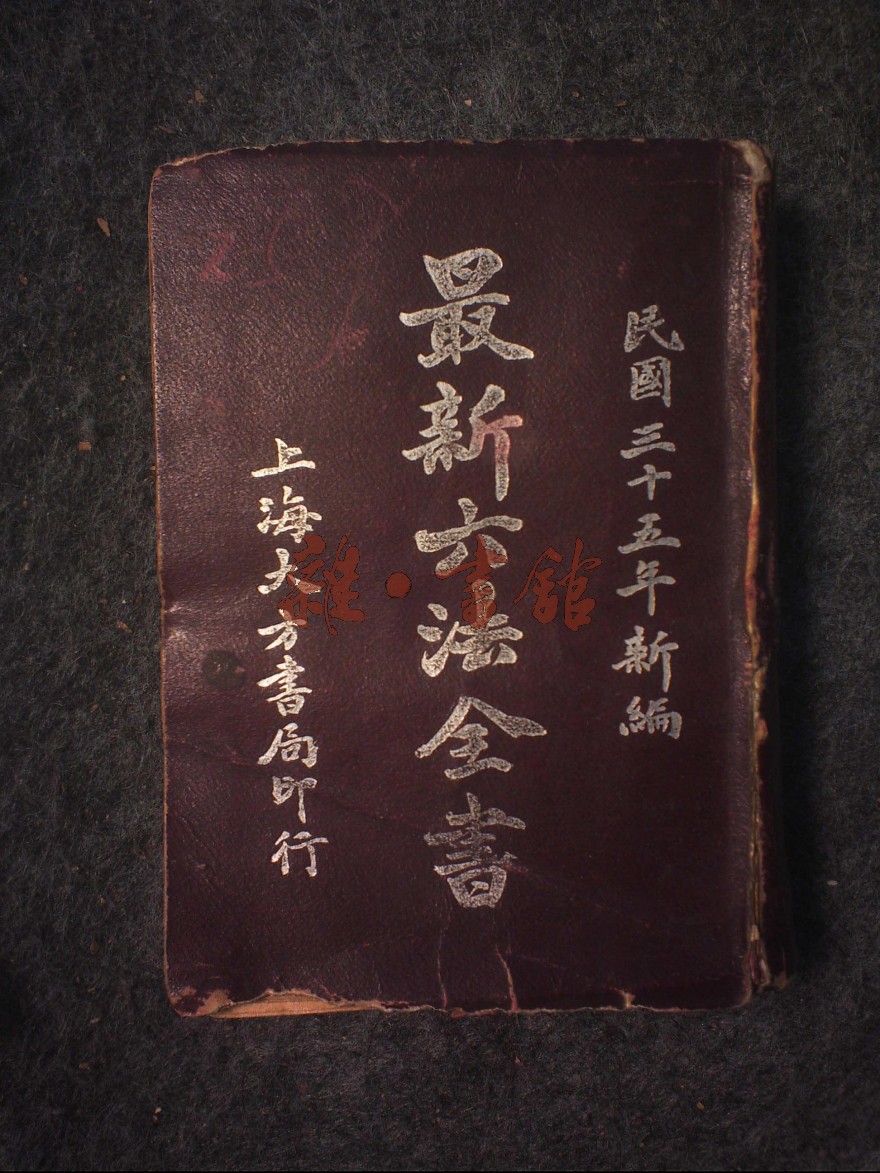 民國三十五年新編
最新六法全書
上海大方書局印行
雜·書館